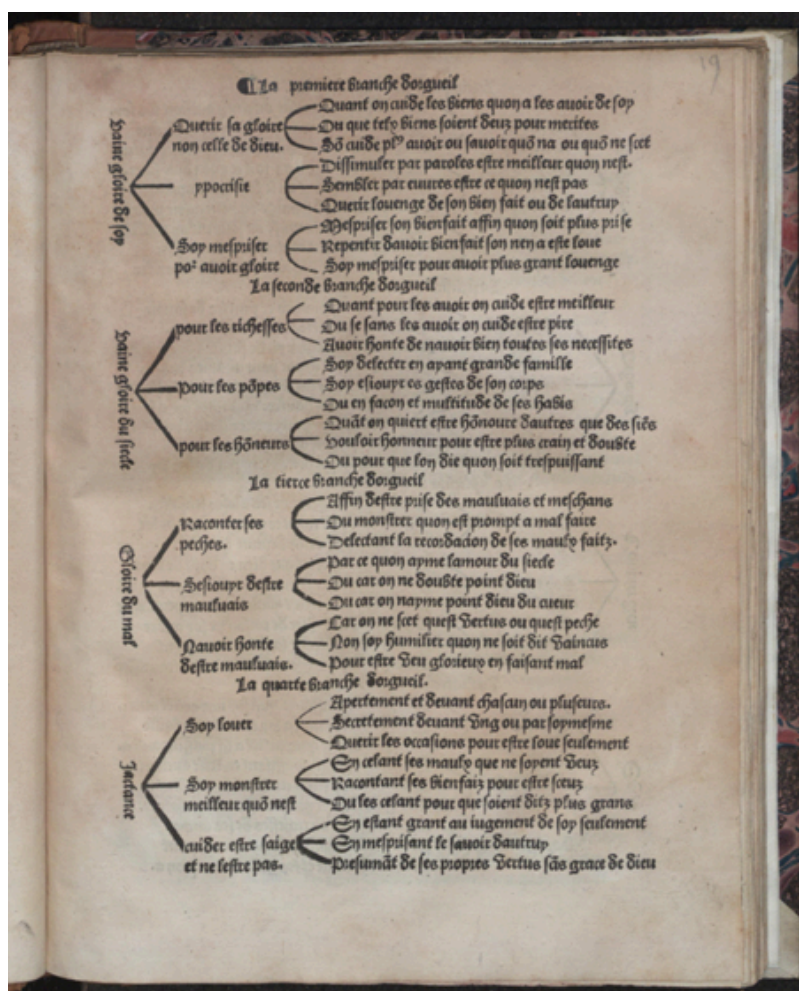 19
¶ La premiere branche dorgueil
Vaine gloire de soy
Querir sa gloire
non celle de dieu.
Quant on cuide les biens quon a les avoir de soy
Ou que telz biens soient deuz pour merites
Sõ cuide plꝰ avoir ou savoir quõ na ou quõ ne scet
ypocrisie
Dissimuler par paroles estre meilleur quon nest.
Sembler par euures estre ce quon nest pas
Querir louenge de son bien fait ou de lautruy
Soy mespriser
poꝛ avoir gloire
Mespriser son bienfait affin quon soit plus prise
Repentir davoir bienfait son nen a este loue
Soy mespriser pour avoir plus grant louenge
La seconde branche dorgueil
vaine gloire du siecle
pour les richesses
Quant pour les avoir on cuide estre meilleur
Ou se sans les avoir on cuide estre pire
Avoir honte de navoir bien toutes ses necessites
Pour les põpes
Soy delecter en ayant grande famille
Soy esiouyr es gestes de son corps
Ou en facon et multitude de ses habis
pour les hõneurs
Quãt on quiert estre hõnoure dautres que des siẽs
Vouloir honneur pour estre plus crain et doubte
Ou pour que lon die quon soit trespuissant
La tierce branche dorgueil
Gloire du mal
Raconter ses
peches.
Affin destre prise des mauluais et meschans
Ou monstrer quon est prompt a mal faire
Delectant la recordacion de ses maulx faitz.
Sesiouyr destre
mauluais
Par ce quon ayme lamour du siecle
Ou car on ne doubte point dieu
Ou car on nayme point dieu du cueur
Navoir honte
destre mauluais.
Car on ne scet quest vertus ou quest peche
Non soy humilier quon ne soit dit vaincus
Pour estre veu glorieux en faisant mal
La quarte branche dorgueil.
Jactance
Soy louer
Apertement et devant chascun ou pluseurs.
Secretement devant vng ou par soymesme
Querir les occasions pour estre loue seulement
Soy monstrer
meilleur quõ nest
En celant ses maulx que ne soyent veuz
Racontant ses bienfaiz pour estre sceuz
Ou les celant pour que soient ditz plus grans
cuider estre saige
et ne lestre pas.
En estant grant au iugement de soy seulement
En mesprisant le savoir dautruy
Presumãt de ses propres vertus sãs grace de dieu